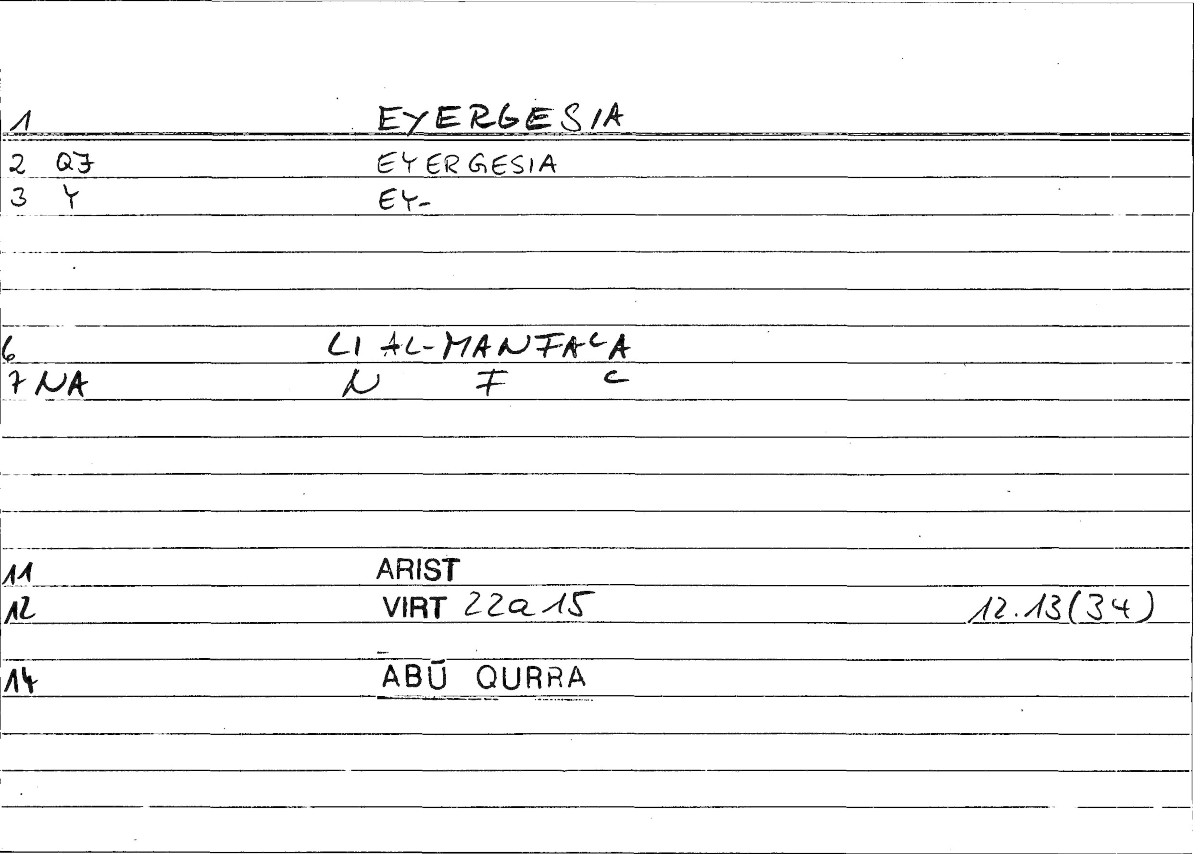 1 EYERGESIA
2 QF EYERGESIA
3 Y EY-
6 LI AL-MANFAᶜA
7 NA N F ᶜ
11 ARIST
12 VIRT 22a15 12.13(34)
14 ABŪ QURRA